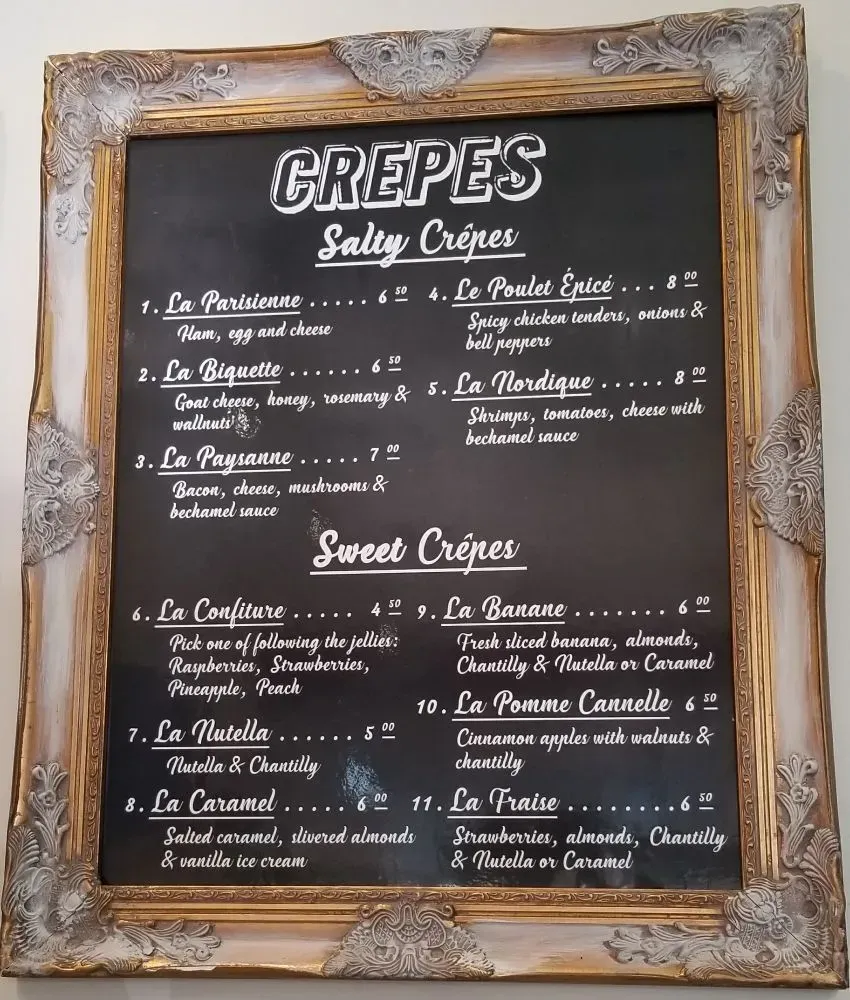 CREPES
Salty Crêpes
1. La Parisienne ..... 6 50
Ham, egg and cheese
2. La Biquette ...... 6 50
Goat cheese, honey, rosemary &
wallnuts
3. La Paysanne ..... 7 00
Bacon, cheese, mushrooms &
bechamel sauce
4. Le Poulet Épicé ... 8 00
Spicy chicken tenders, onions &
bell peppers
5. La Nordique ..... 8 00
Shrimps, tomatoes, cheese with
bechamel sauce
Sweet Crêpes
6. La Confiture ..... 4 50
Pick one of following the jellies:
Raspberries, Strawberries,
Pineapple, Peach
7. La Nutella ...... 5 00
Nutella & Chantilly
8. La Caramel ..... 6 00
Salted caramel, slivered almonds
& vanilla ice cream
9. La Banane ....... 6 00
Fresh sliced banana, almonds,
Chantilly & Nutella or Caramel
10. La Pomme Cannelle 6 50
Cinnamon apples with walnuts &
chantilly
11. La Fraise ......... 6 50
Strawberries, almonds, Chantilly
& Nutella or Caramel